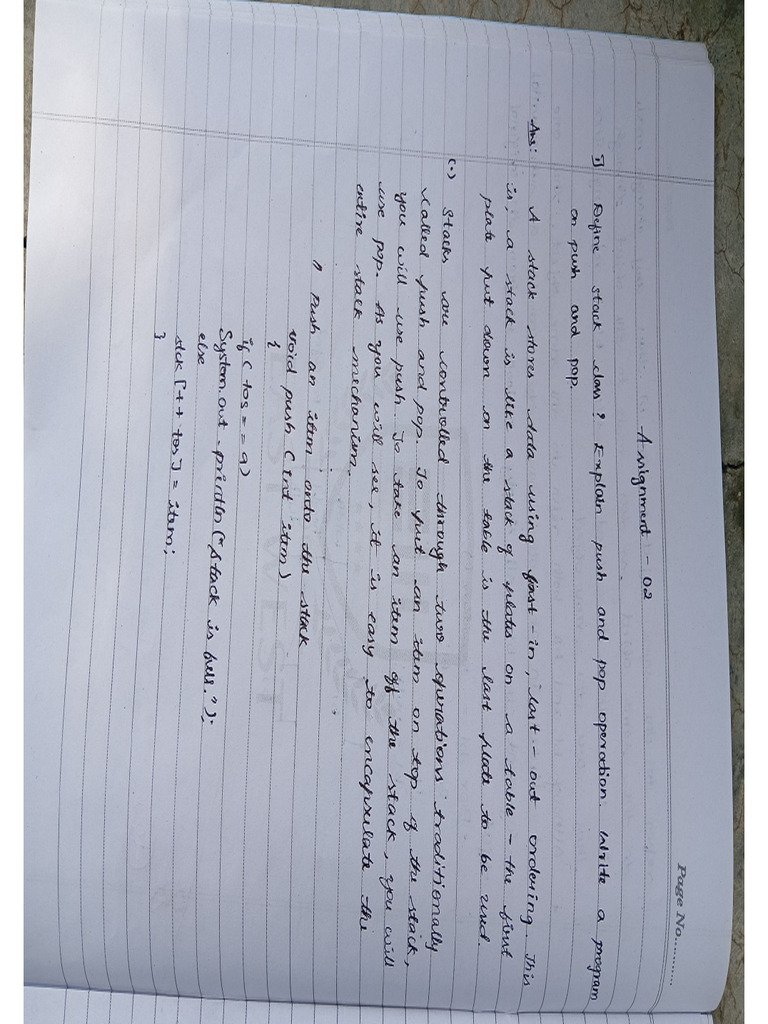 Page No...........
Assignment - 02
1) Define stack class? Explain push and pop operation. Write a program
on push and pop.
Ans: A stack stores data using first-in, last-out ordering. This
is, a stack is like a stack of plates on a table - the first
plate put down on the table is the last plate to be used.
(•) Stacks are controlled through two operations traditionally
called push and pop. To put an item on top of the stack,
you will use push. To take an item off the stack, you will
use pop. As you will see, it is easy to encapsulate the
entire stack mechanism.
// Push an item onto the stack
void push (int item)
{
if ( tos = = 9)
System.out.println ("Stack is full.");
else
stck [++ tos] = item;
}